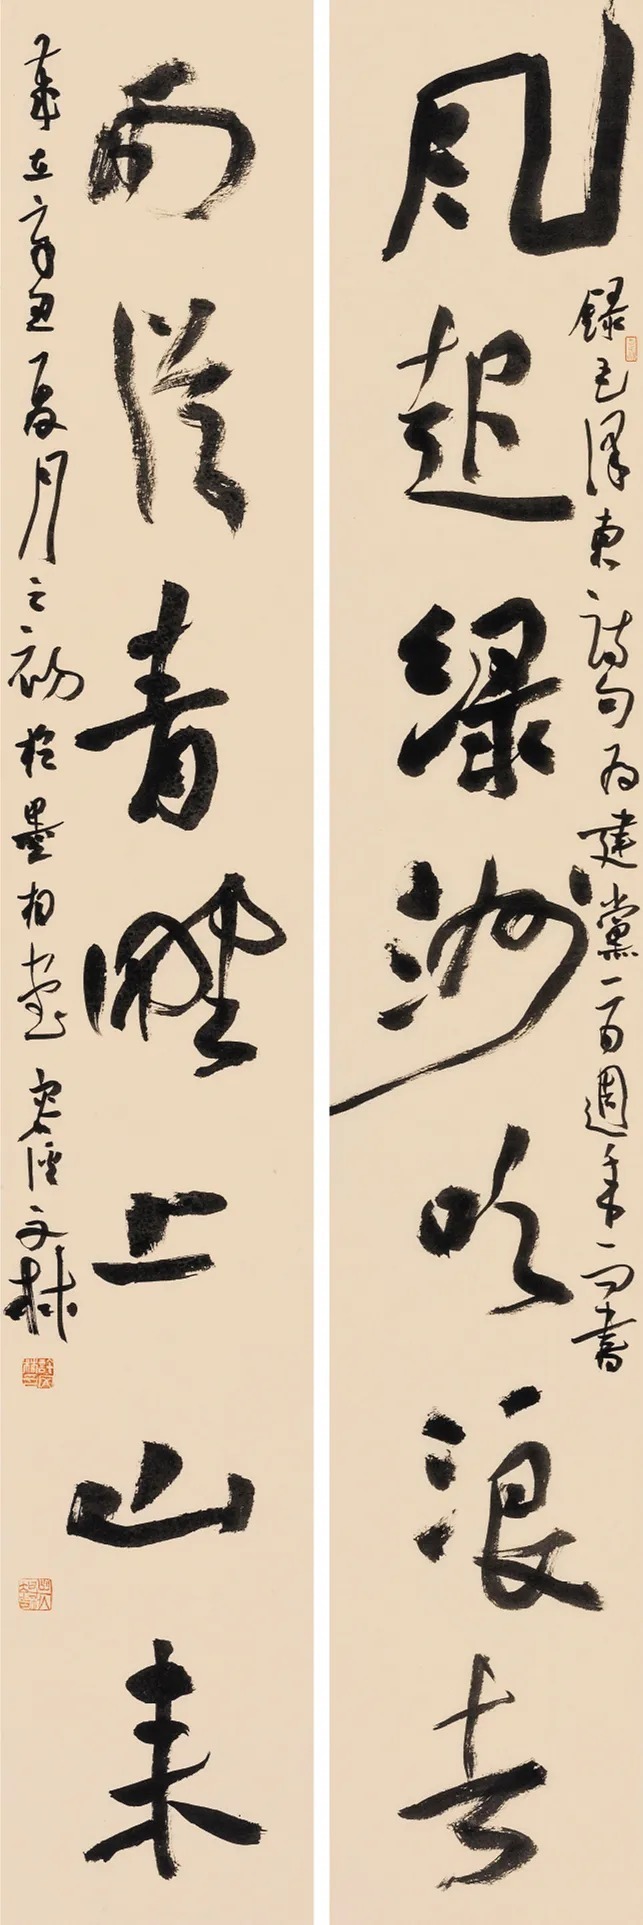 風起綠洲吹浪去
錄毛澤東詩句為建黨一百週年而書
雨從青野上山來
歲在辛丑夏月之初於墨相堂文林